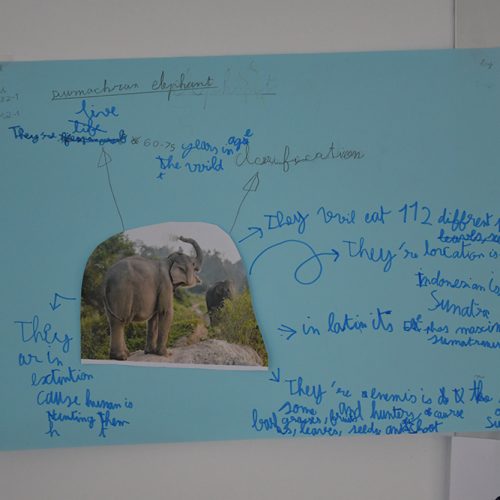 sumachran elephant
live
life
They're 60-75 years in age
the wild
Clasification
They will eat 112 different
leavls,
They're location is
Indonesian is
Sumatra
in latin its Elephas maximu
sumatranus
They
ar in
extintion
cause human is
hunting them
They're enemis is the
some and hunters, of caurse
bark grases, fruit
leaves, seeds and shoot